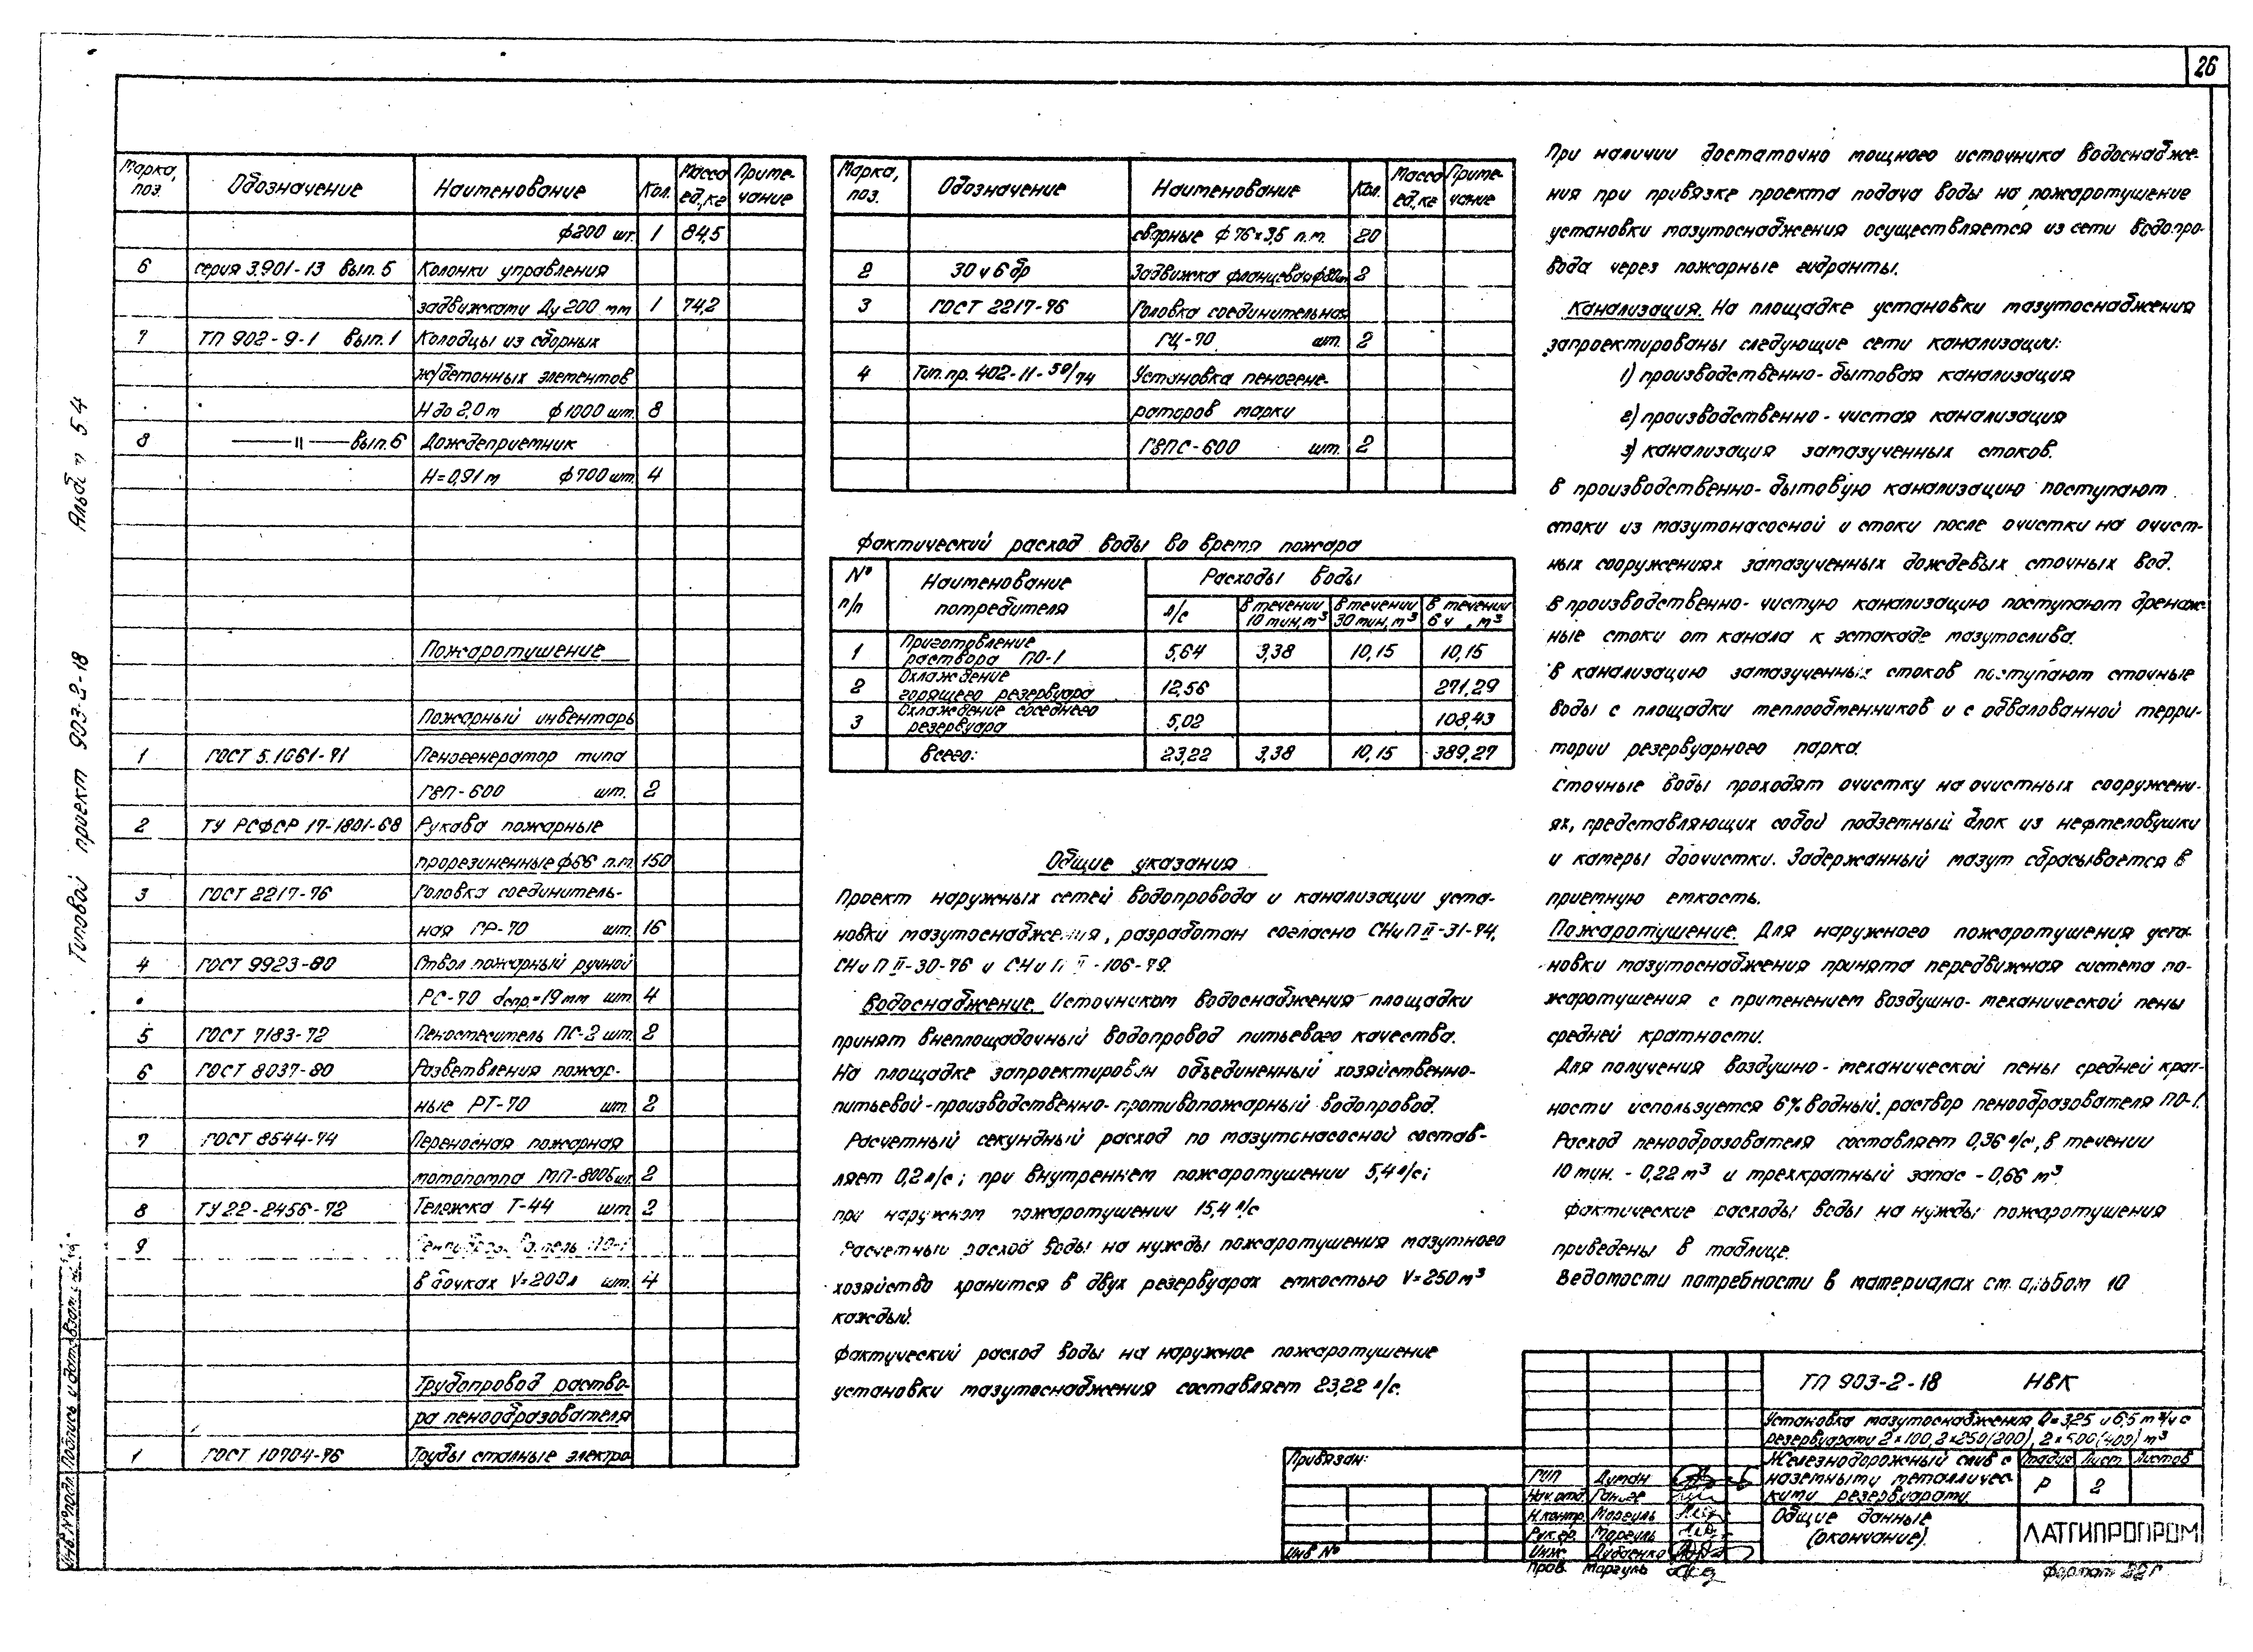 26
Типовой проект 903-2-18
Марка, поз. Обозначение Наименование Кол. Масса ед., кг Примечание
ф200 шт. 1 84,5
6 серия 3.901-13 вып. 5 Колонки управления
задвижками Ду 200 мм 1 74,2
7 ТП 902-9-1 вып. 1 Колодцы из сборных
ж/бетонных элементов
H до 2,0 м ф1000 шт. 8
8 —— " —— вып. 6 Дождеприемник
H=0,91 м ф700 шт. 4
Пожаротушение
Пожарный инвентарь
1 ГОСТ 5.1661-71 Пеногенератор типа
ГВП-600 шт. 2
2 ТУ РСФСР 17-1801-68 Рукава пожарные
прорезиненные ф66 п.м. 150
3 ГОСТ 2217-76 Головка соединитель-
ная ГР-70 шт. 16
4 ГОСТ 9923-80 Ствол пожарный ручной
РС-70 dспр.=19мм шт 4
5 ГОСТ 7183-72 Пеносмеситель ПС-2 шт. 2
6 ГОСТ 8037-80 Разветвления пожар-
ные РТ-70 шт. 2
7 ГОСТ 8544-74 Переносная пожарная
мотопомпа МП-800Б шт. 2
8 ТУ 22-2456-72 Тележка Т-44 шт 2
9
в бочках V=200л шт. 4
Трубопровод раство-
ра пенообразователя
1 ГОСТ 10704-76 Трубы стальные электро-
Марка, поз. Обозначение Наименование Кол. Масса ед., кг Примечание
сварные ф 76×3,5 п.м. 20
2 30ч6бр Задвижка фланцевая ф80шт 2
3 ГОСТ 2217-76 Головка соединительная
ГЦ-70 шт. 2
4 Тип. пр. 402-11-59/74 Установка пеногене-
раторов марки
ГВПС-600 шт. 2
Фактический расход воды во время пожара
№ п/п Наименование потребителя Расходы воды
л/с в течении 10 мин, м³ в течении 30 мин, м³ в течении 6ч, м³
1 Приготовление раствора ПО-1 5,64 3,38 10,15 10,15
2 Охлаждение горящего резервуара 12,56 271,29
3 Охлаждение соседнего резервуара 5,02 108,43
Всего: 23,22 3,38 10,15 389,27
Общие указания
Проект наружных сетей водопровода и канализации уста-
новки мазутоснабжения, разработан согласно СНиП II-31-74,
СНиП II-30-76 и СНиП II-106-79.
Водоснабжение. Источником водоснабжения площадки
принят внеплощадочный водопровод питьевого качества.
На площадке запроектирован объединенный хозяйственно-
питьевой-производственно-противопожарный водопровод.
Расчетный секундный расход по мазутонасосной состав-
ляет 0,2 л/с; при внутреннем пожаротушении 5,4 л/с;
при наружном пожаротушении 15,4 л/с
Расчетный расход воды на нужды пожаротушения мазутного
хозяйство хранится в двух резервуарах емкостью V=250 м³
каждый.
Фактический расход воды на наружное пожаротушение
установки мазутоснабжения составляет 23,22 л/с.
При наличии достаточно мощного источника водоснабже-
ния при привязке проекта подача воды на пожаротушение
установки мазутоснабжения осуществляется из сети водопро-
вода через пожарные гидранты.
Канализация. На площадке установки мазутоснабжения
запроектированы следующие сети канализации:
1) производственно-бытовая канализация
2) производственно-чистая канализация
3) канализация замазученных стоков.
В производственно-бытовую канализацию поступают
стоки из мазутонасосной и стоки после очистки на очист-
ных сооружениях замазученных дождевых сточных вод.
В производственно-чистую канализацию поступают дренаж-
ные стоки от канала к эстакаде мазутослива.
В канализацию замазученных стоков поступают сточные
воды с площадки теплообменников и с обвалованной терри-
тории резервуарного парка.
Сточные воды проходят очистку на очистных сооружени-
ях, представляющих собой подземный блок из нефтеловушки
и камеры доочистки. Задержанный мазут сбрасывается в
приемную емкость.
Пожаротушение. Для наружного пожаротушения уста-
новки мазутоснабжения принята передвижная система по-
жаротушения с применением воздушно-механической пены
средней кратности.
Для получения воздушно-механической пены средней крат-
ности используется 6% водный раствор пенообразователя ПО-1.
Расход пенообразователя составляет 0,36 л/с, в течении
10 мин. - 0,22 м³ и трехкратный запас - 0,66 м³
Фактические расходы воды на нужды пожаротушения
приведены в таблице.
Ведомости потребности в материалах см. альбом 10
Привязан:
Инв №
ГИП Думан
Нач. отд.
Н. контр. Маргуль
Рук. гр. Маргуль
Инж. Дубаенко
Пров. Маргуль
ТП 903-2-18 НВК
Установка мазутоснабжения Q=3,25 и 6,5 м³/ч с
резервуарами 2×100, 2×250(200), 2×500(400) м³
Железнодорожный слив с
наземными металличес-
кими резервуарами.
Стадия Лист Листов
Р 2
Общие данные
(окончание)
ЛАТГИПРОПРОМ
Формат 22Г
Инв. № подл. Подпись и дата